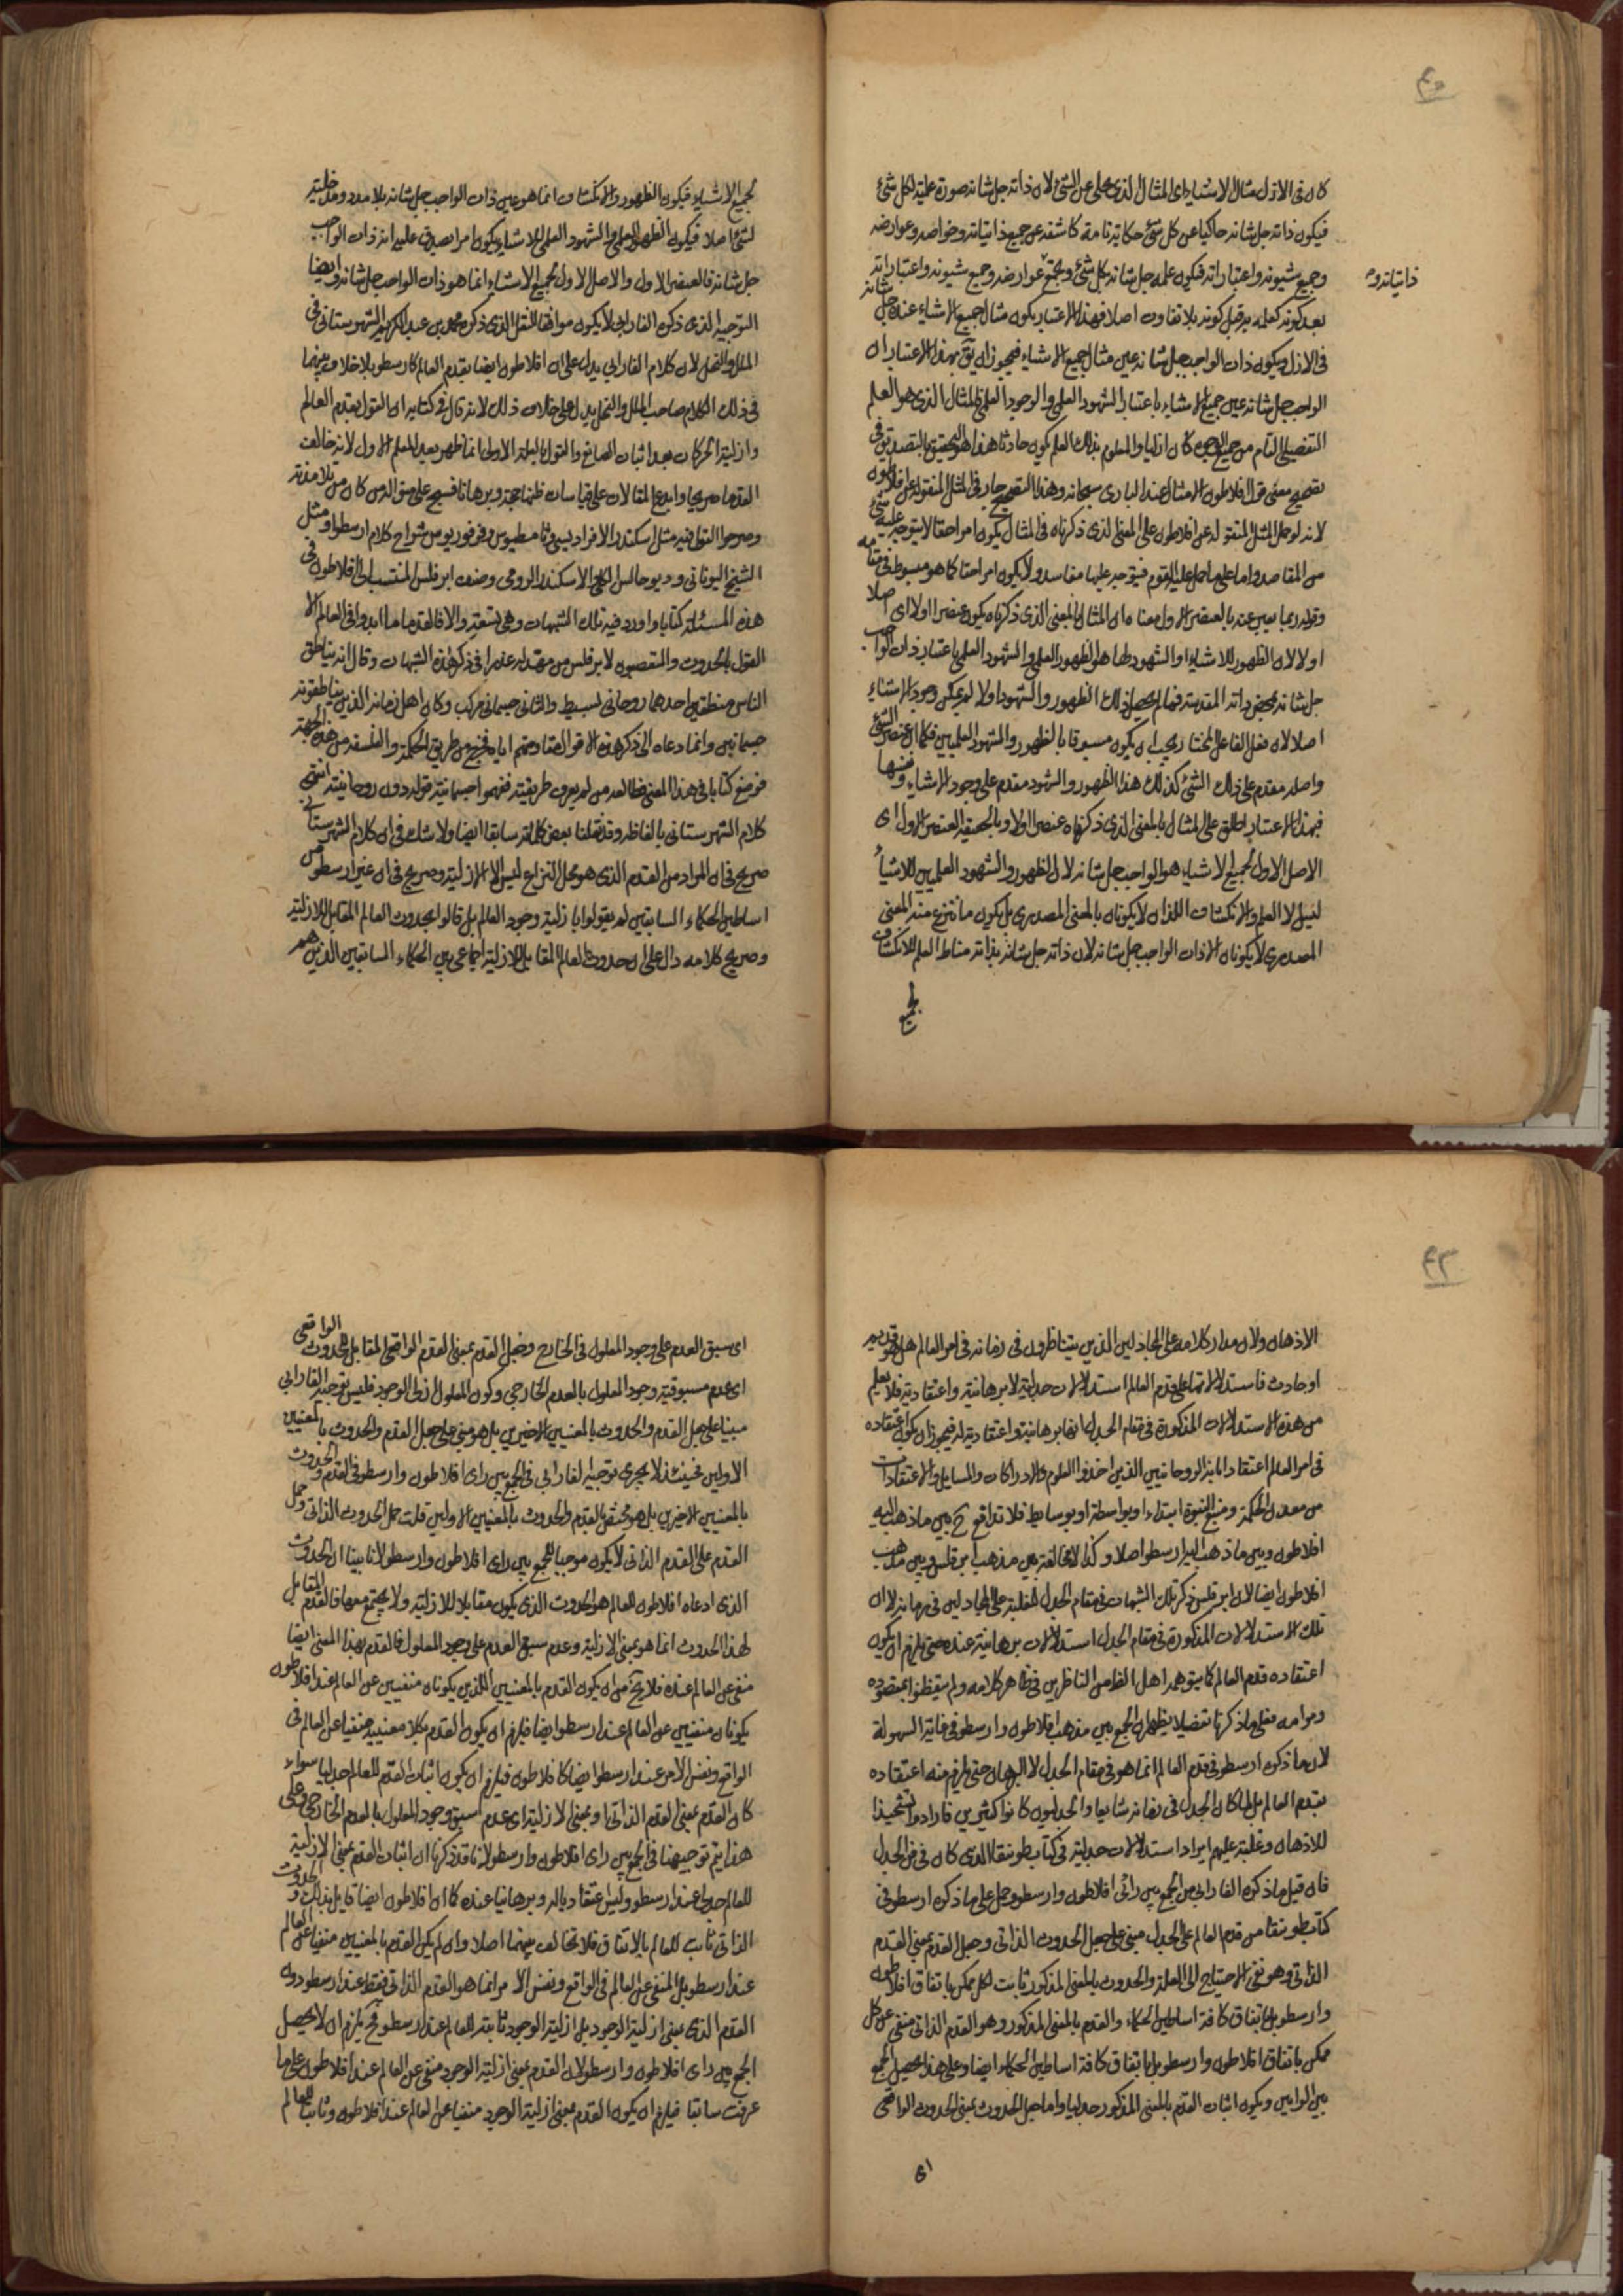 ٤٠
كان فى الازل مثال الاشياء اى المثال الذى يحكى عن الشئ لان ذاته جل شانه صورة علمية لكل شئ
فيكون ذاته جل شانه حاكيا عن كل شئ حكاية تامة كاشفه عن جميع ذاتياته وخواصه وعوارضه
وجميع شيونه واعتباراته فيكون علمه جل شانه بكل شئ وبجميع عوارضه وجميع شيونه واعتباراته
ذاتياته و
بعد كونه كعلمه به قبل كونه بلا تفاوت اصلا فبهذا الاعتبار يكون مثال جميع الاشياء عنده جل شانه
فى الازل ويكون ذات الواجب جل شانه عين مثال جميع الاشياء فيجوز ان يق بهذا الاعتبار ان
الواجب جل شانه عين جميع الاشياء باعتبار الشهود العلمى والوجود العلمى فالمثال الذى هو العلم
التفصيلى التام من جميع الوجوه كان ازليا والمعلوم بذلك العلم يكون حادثا هذا هو التحقيق بالتصديق فى
تصحيح معنى قول افلاطون الامثال عند البارى سبحانه وهذا التصحيح جار فى المثل المنقولة عن افلاطون
لانه لو حمل المثل المنقولة عن افلاطون على المعنى الذى ذكرناه فى المثال يكون امرا حقا لا يتوجه عليه شئ
من المفاسد واما على ما حمل عليه القوم فيتوجه عليها مفاسد ولا يكون امرا حقا كما هو مبسوط فى مقامه
وقوله ربما يعبر عنه بالعنصر الاول معناه ان المثال بالمعنى الذى ذكرناه يكون عنصرا اولا اى اصلا
اولا لان الظهور للاشياء والشهود لها هو الظهور العلمى والشهود العلمى باعتبار ذات الواجب
جل شانه بمحض ذاته المقدسة فما لم يحصل ذلك الظهور والشهود اولا لم يمكن وجود الاشياء
اصلا لان فعل الفاعل المختار يجب ان يكون مسبوقا بالظهور والشهود العلميين فكما ان عنصر الشئ
واصله مقدم على ذلك الشئ كذلك هذا الظهور والشهود مقدم على وجود الاشياء ونفسها
فبهذا الاعتبار اطلق على المثال بالمعنى الذى ذكرناه عنصرا اولا وبالحقيقة العنصر الاول اى
الاصل الاول لجميع الاشياء هو الواجب جل شانه لان الظهور والشهود العلميين للاشياء
ليس الا العلم والانكشاف اللذان لا يكونان بالمعنى المصدرى بل يكون ما ينتزع منه المعنى
المصدرى لا يكونان الا ذات الواجب جل شانه لان ذاته جل شانه بذاته مناط العلم للانكشاف
لجميع
لجميع الاشياء فيكون الظهور والانكشاف انما هو عين ذات الواجب جل شانه بلا مدد ومدخلية
لشئ اصلا فيكون الظهور العلمى والشهود العلمى للاشياء يكون امرا يصدق عليه انه ذات الواجب
جل شانه فالعنصر الاول والاصل الاول لجميع الاشياء انما هو ذات الواجب جل شانه وايضا
التوجيه الذى ذكره الفارابى لا يكون موافقا للنقل الذى ذكره محمد بن عبد الكريم الشهرستانى فى
الملل والنحل لان كلام الفارابى يدل على ان افلاطون ايضا يقدم العالم كارسطو بلا خلاف بينهما
فى ذلك الكلام صاحب الملل والنحل يدل على خلاف ذلك لانه قال فى كتابه ان القول بقدم العالم
وازلية الحركات بعد اثبات الصانع والقول بالعلة الاولى انما ظهر بعد المعلم الاول لانه خالف
القدما صريحا وابدع المقالات على قياسات ظنها حجة وبرهانا فنسج على منواله من كان من تلامذته
وصرحوا القول فيه مثل اسكندر الافروديسى وثامسطيوس وفرفوريوس من شراح كلام ارسطو ومثل
الشيخ اليونانى وديوجانس الكلبى والاسكندر الرومى وصنف ابرقلس المنتسب الى افلاطون فى
هذه المسئلة كتابا واورد فيه تلك الشبهات وهى تسعة والا فالقدما ما ابدوا فى العالم الا
القول بالحدوث والمتعصبون لابرقلس من مهد له عذرا فى ذكر هذه الشبهات وقال انه يناطق
الناس منطقين احدهما روحانى بسيط والثانى جسمانى مركب وكان اهل زمانه الذين يناطقونه
جسمانيين وانما دعاه الى ذكر هذه الاقوال مقاومتهم اياه فخرج من طريق الحكمة والفلسفة من هذه الجهة
فوضع كتابا فى هذا المعنى فطالعه من لم يعرف طريقته ففهموا جسمانية قوله دون روحانيته انتهى
كلام الشهرستانى بالفاظه وقد نقلنا بعض كلماته سابقا ايضا ولا شك فى ان كلام الشهرستانى
صريح فى ان المراد من القدم الذى هو محل النزاع ليس الا الازلية وصريح فى ان غير ارسطو من
اساطين الحكماء السابقين لم يقولوا بازلية وجود العالم بل قالوا بحدوث العالم المقابل للازلية
وصريح كلامه دال على ان حدوث العالم المقابل للازلية اجماعى بين الحكماء السابقين الذين هم
٤٣
الاذهان ولان مدار كلامه على المجادلين الذين يتناظرون فى زمانه فى امر العالم هل هو قديم
او حادث فاستدلالاتها على قدم العالم استدلالات جدلية لا برهانية واعتقادية فلا يعلم
من هذه الاستدلالات المذكورة فى مقام الجدل انها برهانية واعتقادية له فيجوز ان يكون اعتقاده
فى امر العالم اعتقاد اباته الروحانيين الذين اخذوا العلوم والادراكات والمسايل والاعتقادات
من معدن الحكمة ومنبع النبوة ابتداء او بواسطة او بوسايط فلا تدافع ح بين ما ذهب اليه
افلاطون وبين ما ذهب اليه ارسطو اصلا وكذا لا مخالفة بين مذهب ابرقلس وبين مذهب
افلاطون ايضا لان ابرقلس ذكر تلك الشبهات فى مقام الجدل للغلبة على المجادلين فى زمانه لا ان
تلك الاستدلالات المذكورة فى مقام الجدل استدلالات برهانية عنده حتى يلزم ان يكون
اعتقاده قدم العالم كما يتوهمه اهل الظاهر الناظرين فى ظاهر كلامه ولم يتفطنوا بمقصوده
ومرامه فعلى ما ذكرنا تفصيلا يظهر ان الجمع بين مذهب افلاطون وارسطو فى غاية السهولة
لان ما ذكره ارسطو فى قدم العالم انما هو فى مقام الجدل لا البرهان حتى يلزم منه اعتقاده
بقدم العالم بل لما كان الجدل فى زمانه شايعا والجدليون كانوا كثيرين فارادوا تشحيذا
للاذهان وغلبة عليهم ايراد استدلالات جدلية فى كتاب طوبيقا الذى كان فى فن الجدل
فان قيل ما ذكره الفارابى من الجمع بين رائى افلاطون وارسطو وحمل على ما ذكره ارسطو فى
كتاب طوبيقا من قدم العالم على الجدل مبنى على حمل الحدوث الذاتى وحمل القدم بمعنى القدم
الذاتى وهو نفى الاحتياج الى العلة والحدوث بالمعنى المذكور ثابت لكل ممكن باتفاق افلاطون
وارسطو بل باتفاق كافة اساطين الحكماء والقدم بالمعنى المذكور وهو القدم الذاتى منفى عن كل
ممكن باتفاق افلاطون وارسطو بل باتفاق كافة اساطين الحكماء ايضا وعلى هذا يحصل الجمع
بين الرايين ويكون اثبات القدم بالمعنى المذكور جدليا واما حمل الحدوث بمعنى الحدوث الواقعى
اى
اى سبق العدم على وجود المعلول فى الخارج وحمل القدم بمعنى القدم الواقعى المقابل للحدوث الواقعى
اى عدم مسبوقية وجود المعلول بالعدم الخارجى وكون المعلول ازلى الوجود فليس توجيه الفارابى
مبنيا على حمل القدم والحدوث بالمعنيين الاخيرين بل هو مبنى على حمل القدم والحدوث بالمعنيين
الاولين فحينئذ لا يجرى توجيه الفارابى فى الجمع بين راى افلاطون وارسطو فى القدم والحدوث
بالمعنيين الاخيرين بل هو مختص بالقدم والحدوث بالمعنيين الاولين قلت حمل الحدوث الذاتى وحمل
القدم على القدم الذاتى لا يكون موجبا للجمع بين راى افلاطون وارسطو لانا بينا ان الحدوث
الذى ادعاه افلاطون للعالم هو الحدوث الذى يكون مقابلا للازلية ولا يجتمع معها فالقدم المقابل
لهذا الحدوث انما هو بمعنى الازلية وعدم سبق العدم على وجود المعلول فالقدم بهذا المعنى ايضا
منفى عن العالم عنده فلا يخ من ان يكون القدم بالمعنيين اللذين يكونان منفيين عن العالم عند افلاطون
يكونان منفيين عن العالم عند ارسطو ايضا فيلزم ان يكون القدم بكلا معنييه منفيا عن العالم فى
الواقع ونفس الامر عند ارسطو ايضا كافلاطون فيلزم ان يكون اثبات القدم للعالم جدليا سواء
كان القدم بمعنى القدم الذاتى او بمعنى الازلية اى عدم سبق وجود المعلول بالعدم الخارجى فعلى
هذا يتم توجيهنا فى الجمع بين راى افلاطون وارسطو لانا قد ذكرنا ان اثبات القدم بمعنى الازلية
للعالم جدلى عند ارسطو وليس اعتقاديا له وبرهانيا عنده كما ان افلاطون ايضا قايل بذلك والحدوث
الذاتى ثابت للعالم بالاتفاق فلا تخالف بينهما اصلا وان لم يكن القدم بالمعنيين منفيا عن العالم
عند ارسطو بل المنفى عن العالم فى الواقع ونفس الامر انما هو القدم الذاتى فقط عند ارسطو دون
القدم الذى بمعنى ازلية الوجود بل ازلية الوجود ثابتة للعالم عند ارسطو فح يلزم ان لا يحصل
الجمع بين راى افلاطون وارسطو لان القدم بمعنى ازلية الوجود منفى عن العالم عند افلاطون على ما
عرفت سابقا فيلزم ان يكون القدم بمعنى ازلية الوجود منفيا عن العالم عند افلاطون وثابتا للعالم